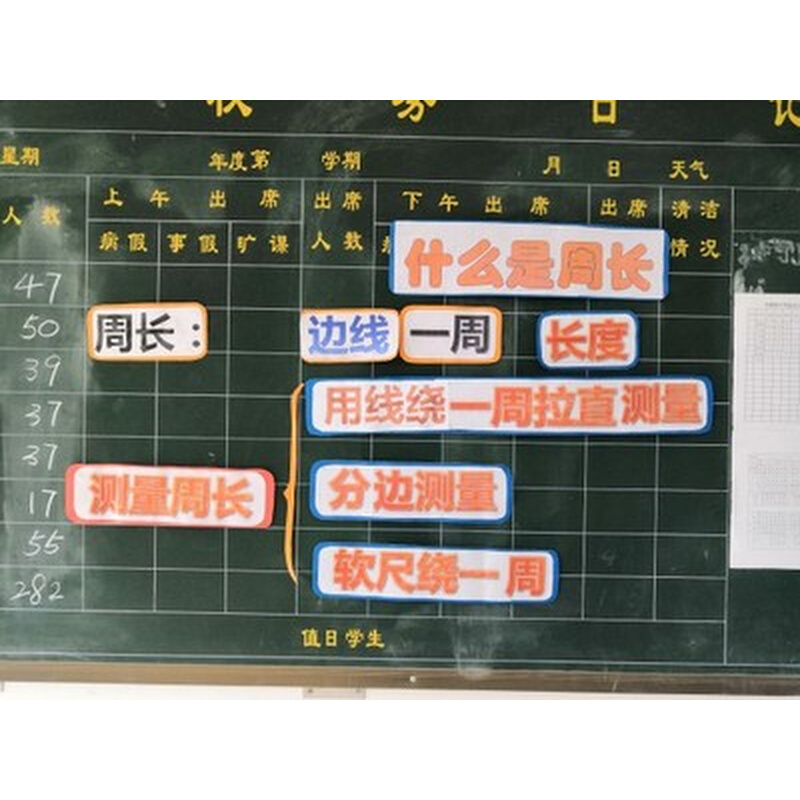 星期 年度第 学期 月 日 天气
人数 上午出席 出席 下午出席 出席 清洁
病假 事假 旷课 人数 情况
什么是周长
47
50 周长： 边线 一周 长度
39
37 用线绕一周拉直测量
37
17 测量周长 分边测量
55
282 软尺绕一周
值日学生